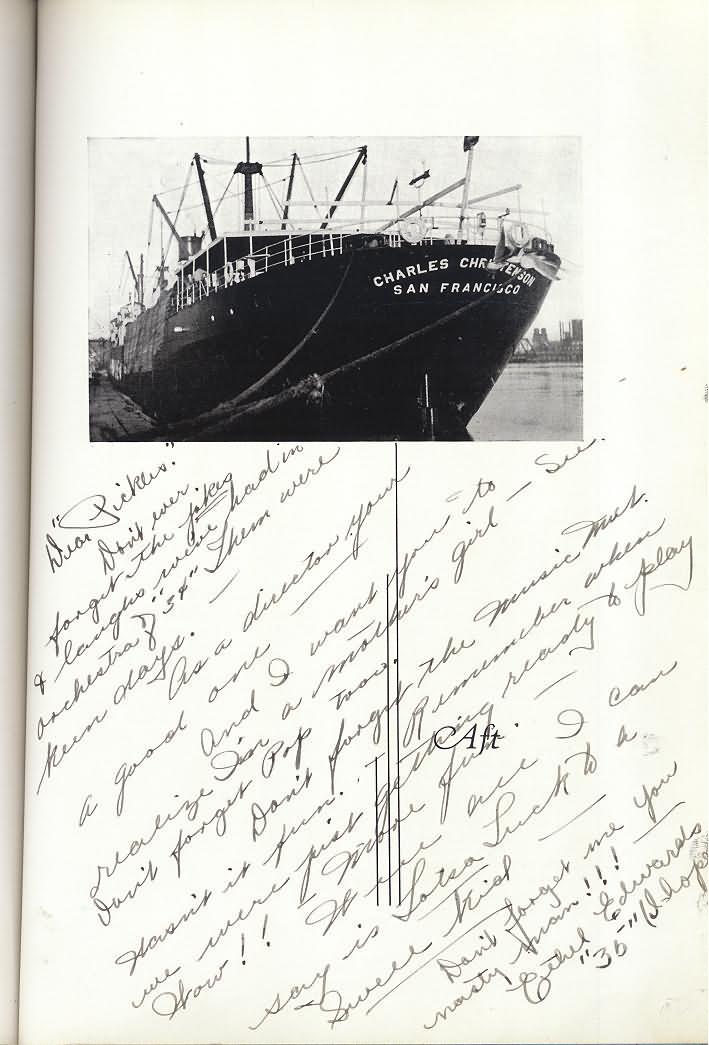 CHARLES CHRISTENSON
SAN FRANCISCO
Dear "Pickles."
Don't ever
forget the jokes
& laughs we've had in
orchestra of "34" Them were
keen days. —
As a director your
a good one —
And I want you to
realize I'm a mother's girl — See.
Don't forget Pop too.
Don't forget the music meet.
Wasn't it fun. — Remember when
we were just getting ready to play
Wow!! — More fun —
Well all I can
say is Lotsa Luck to a
Swell Kid —
Don't forget me you
nasty man!!! —
Ethel Edwards
"35" (I hope
Aft